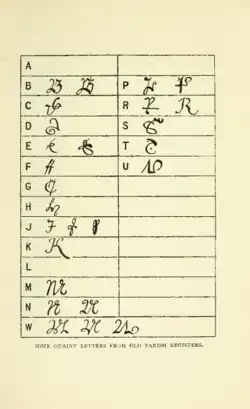 A
B B B P P P
C C R R R
D D S S
E E E T T
F ff U U
G G
H H
J J J J
K K
L
M M
N N N
W W W W
SOME QUAINT LETTERS FROM OLD PARISH REGISTERS.